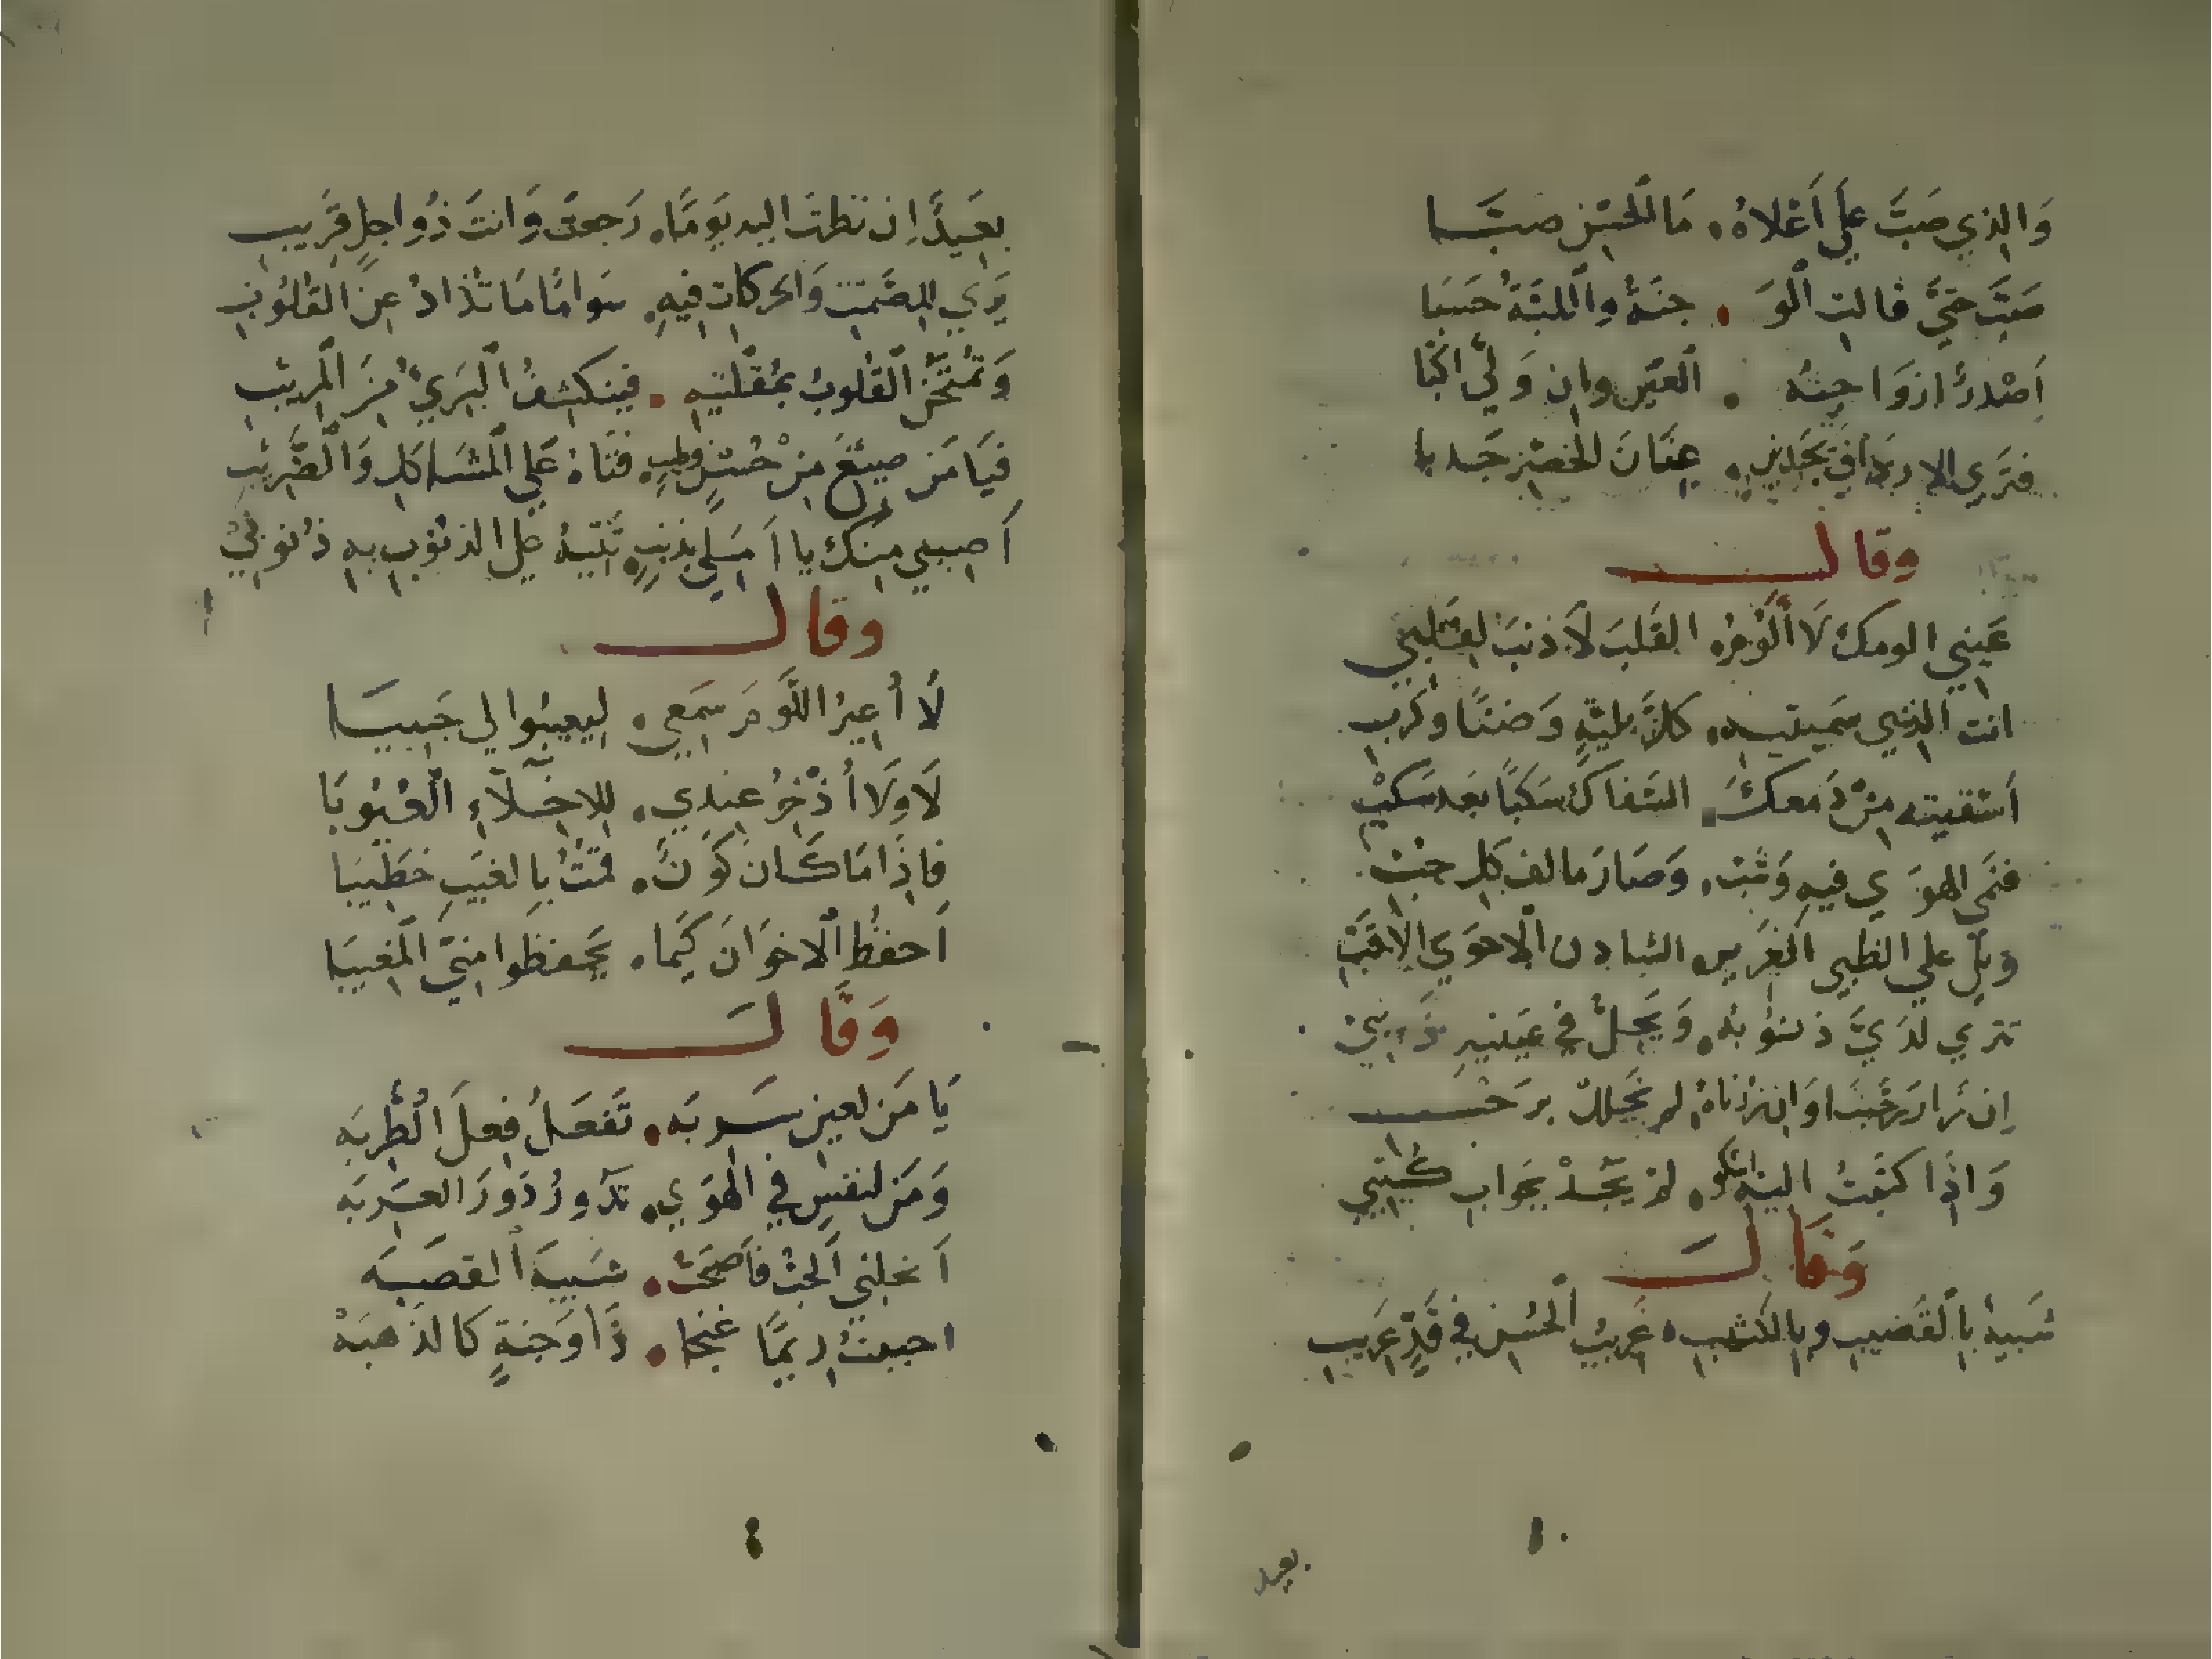 وَالذي صَبَّ علَى أَعْلاهُ، مَا للحُسْنِ صبَّا
صَبَّ حَتَّى قالتِ الْوَ . جنَةُ واللبَّةُ حَسبَا
العَيْن وان وَلَّى
فتَرَى
وقال
عَيني الومك لَا أَلُومُ القَلبَ لَا ذنبَ لقلبي
انت الذي سميتيه، كلَّ بليةٍ وَضنًا وكَربِ
اَسْقيته مِنْ دَمعكَ. السَفاك سَكبًا بَعد سَكبِ
فنمَى الهوَي فيهِ وَشبّ، وَصَارَ مالف كلِ حبِّ
ويلي علي الظبي الغَرير، الشادن الاحوَي الاقَبِّ
تتري لدَيَّ ذنوُبُه، وَيَجلُّ في عَينيهِ ذَنبي
اِن زَار رَحَّبنَا وَاِن زرْنَاهُ لم نَحلل برَحْبِ
وَاذَا كتَبتُ اليه اشكو، لم يَجُدْ بجَوابِ كتْبي
وَقَالَ
شَبيهٌ بِالْقَضيبِ وبِالكثيبِ، غَريبُ الْحُسنِ في قَدٍّ غَريبِ
بعيد
١٠
بعَيدٌ اِن نظرتَ اليه يَومًا، رَجعتَ وَانتَ ذُو اجلٍ قَريبِ
يَري للصَّمتِ وَالحركَاتِ فيهِ، سَوامًا مَا تُذادُ عِن القُلوُبِ
وَتمتَحنُ القُلوبُ بمُقلتيهِ. فيَنكَشفُ الْبَريُّ مِنَ الْمُريبِ
فيَا مَن صيغَ مِنْ حُسنٍ وطيبٍ، فتَاهَ عَلي الْمشَاكلِ وَالْضَّريبِ
أَصِبني منك يا أَمَلي بذنبٍ، تَتيهُ على الذنوُبِ بهِ ذُنوبيْ
وقال
لَا أُعيرُ اللَّومَ سَمعي، ليعيبُوا لي حَبيبَا
لَا ولَا أُذْخُرُ عندي، للاخلَّاءِ الْعُيوُبَا
فاِذَا مَا كَانَ كَوْنٌ، قمْتُ بِالغَيبِ خَطيبَا
اَحفظُ الْاخوَانَ كَيما، يَحفظَوا منيّ الْمَغيبَا
وَقَالَ
يَا مَن لعينٍ سَربَه، تَفعَلُ فِعلَ الْطَّربَه
وَمَن لنفسٍ في الهوَي، تدَورُ دَورَ العَرَبَه
اَنحلني اَلحبُّ فاَصبحتُ، شَبيهَ الْقصَبَه
احببتُ ريمًا غنجا، ذَا وَجنةٍ كالذَهبَهْ
٤